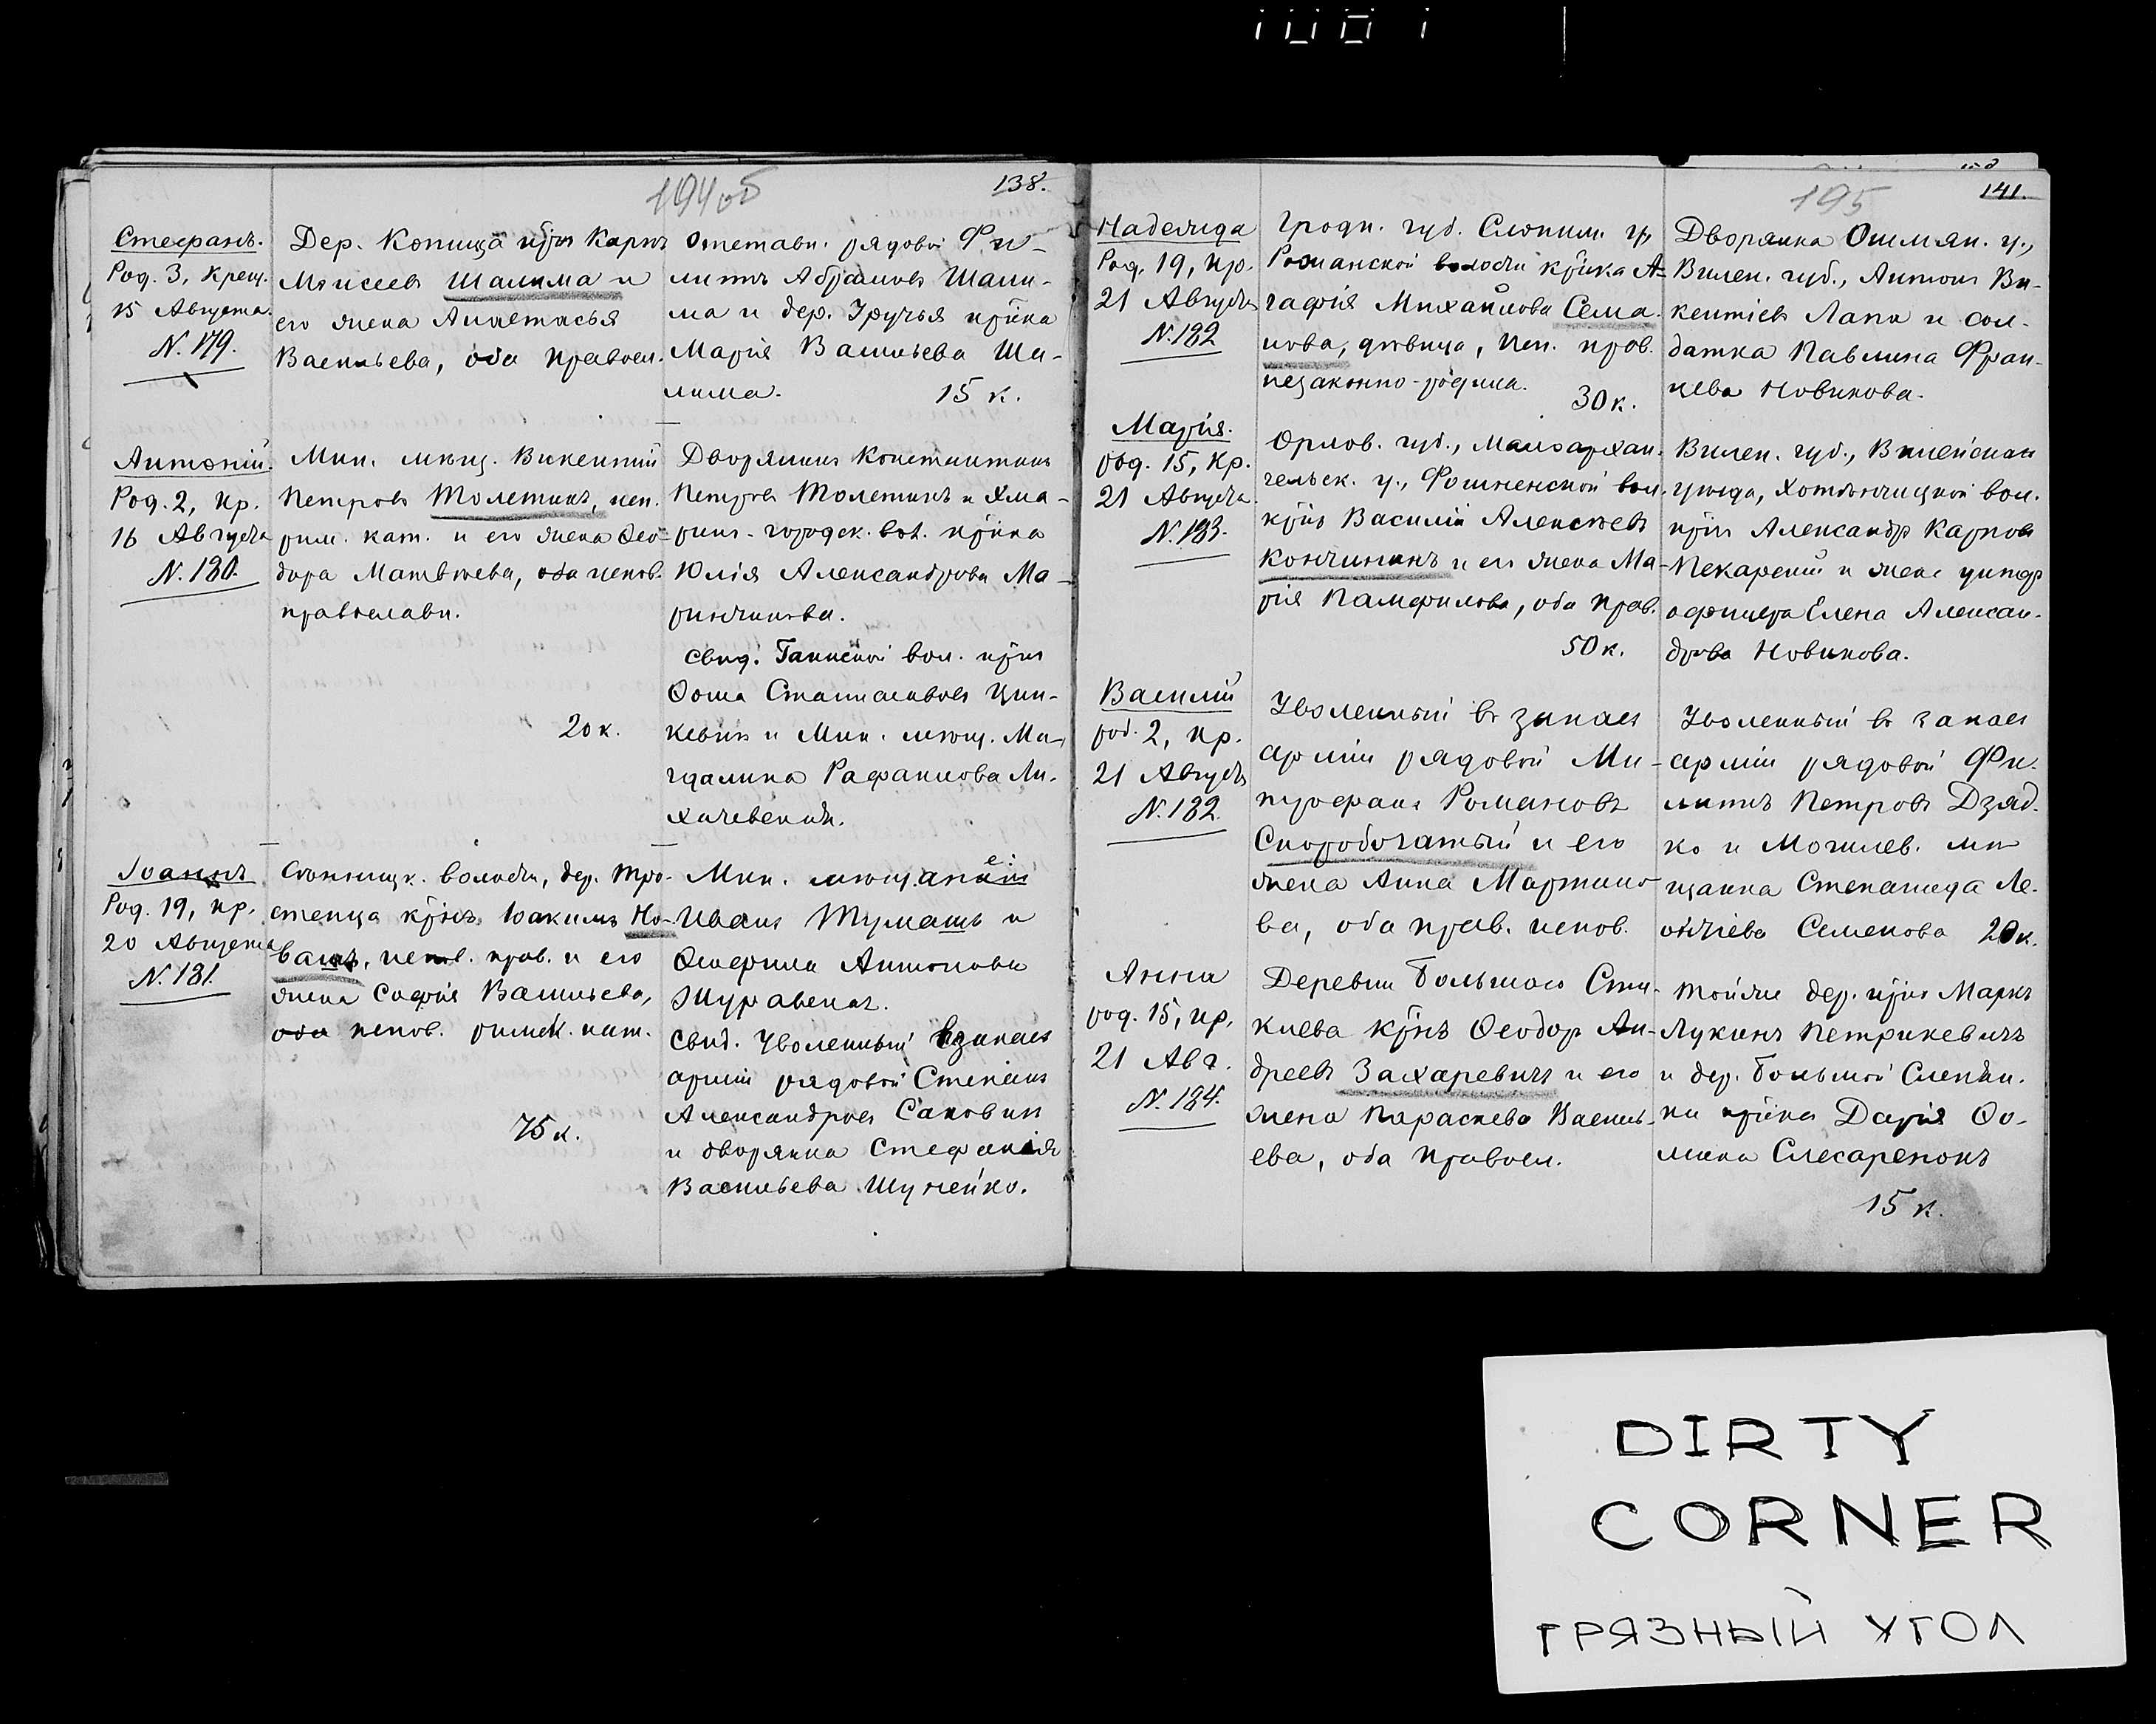 194об
138.
Стефанъ.
Род. 3, крещ.
15 Августа.
N. 179.
Дер. Копища крн Карпъ
Моисеевъ Шалима и
его жена Анастасья
Васильева, оба правосл.
отставн. рядовой Фи-
липпъ Абрамовъ Шали-
ма и дер. Уручья крнка
Марія Васильева Ша-
лима.
15 к.
Антоній.
Род. 2, кр.
16 Августа
N. 180.
Мин. мѣщ. Викентій
Петровъ Толстикъ, исп.
рим. кат. и его жена Ѳео-
дора Матвѣева, оба испов.
православн.
20 к.
Дворянинъ Константинъ
Петровъ Толстикъ и Хма-
рин.-городск. вол. крнка
Юлія Александрова Ма-
ринчикова.
свид. Гаинской вол. крн
Ѳома Станиславовъ
и Мин. мѣщ. Ма-
гдалина Рафаилова Ли-
хачевскихъ.
Іоаннъ
Род. 19, кр.
20 Августа
N. 181.
волости, дер. Тро-
стенца крнъ Іоакимъ Но-
вашъ, испов. прав. и его
жена Софія Васильева,
оба испов. римск. кат.
75 к.
Мин. мѣщане
Иванъ Тумашъ и
Антонова
Журавская.
Свид. Уволенный въ запасъ
арміи рядовой Степанъ
Александровъ Саковичъ
и дворянка Стефанія
Васильева Шунейко.
195
141.
Надежда
Род. 19, кр.
21 Августа
N. 182
Гродн. губ. Слоним. у.
Рожанской волости крнка А-
гафія Михайлова Сема-
шова, дѣвица, исп. прав.
незаконно-родила.
30 к.
Дворянка Ошмян. у.,
Вилен. губ., Антонъ Ви-
кентіевъ Лапа и сол-
датка Павлина Фран-
цева Новикова.
Марія.
род. 15, кр.
21 Августа
N. 183.
Орлов. губ., Малоархан-
гельск. у., Фошненской вол.
крнъ Василій Алексѣевъ
Кончининъ и его жена Ма-
рія Памфилова, оба прав.
50 к.
Вилен. губ., Вилейскаго
уѣзда, Хотѣнчицкой вол.
крнъ Александръ Карповъ
Пекарскій и жена унтеръ
офицера Елена Алексан-
дрова Новикова.
Василій
род. 2, кр.
21 Августа
N. 182.
Уволенный въ запасъ
арміи рядовой Ми-
трофанъ Романовъ
Скоробогатый и его
жена Анна Мартино-
ва, оба прав. испов.
Уволенный въ запасъ
арміи рядовой Фи-
липпъ Петровъ Дзяд-
ко и Могилев. мѣ-
щанка Степанида Ле-
онтіева Семенова 20 к.
Анна
род. 15, кр.
21 Авг.
N. 184.
Деревни Большого Сти-
клева крнъ Ѳеодоръ Ан-
дреевъ Захаревичъ и его
жена Параскева Василь-
ева, оба правосл.
Той же дер. крнъ Маркъ
Лукинъ Петрикевичъ
и дер. Большой Слепян-
ки крнка Дарія Ѳо-
мина Слесаренокъ
15 к.
DIRTY
CORNER
ГРЯЗНЫЙ УГОЛ